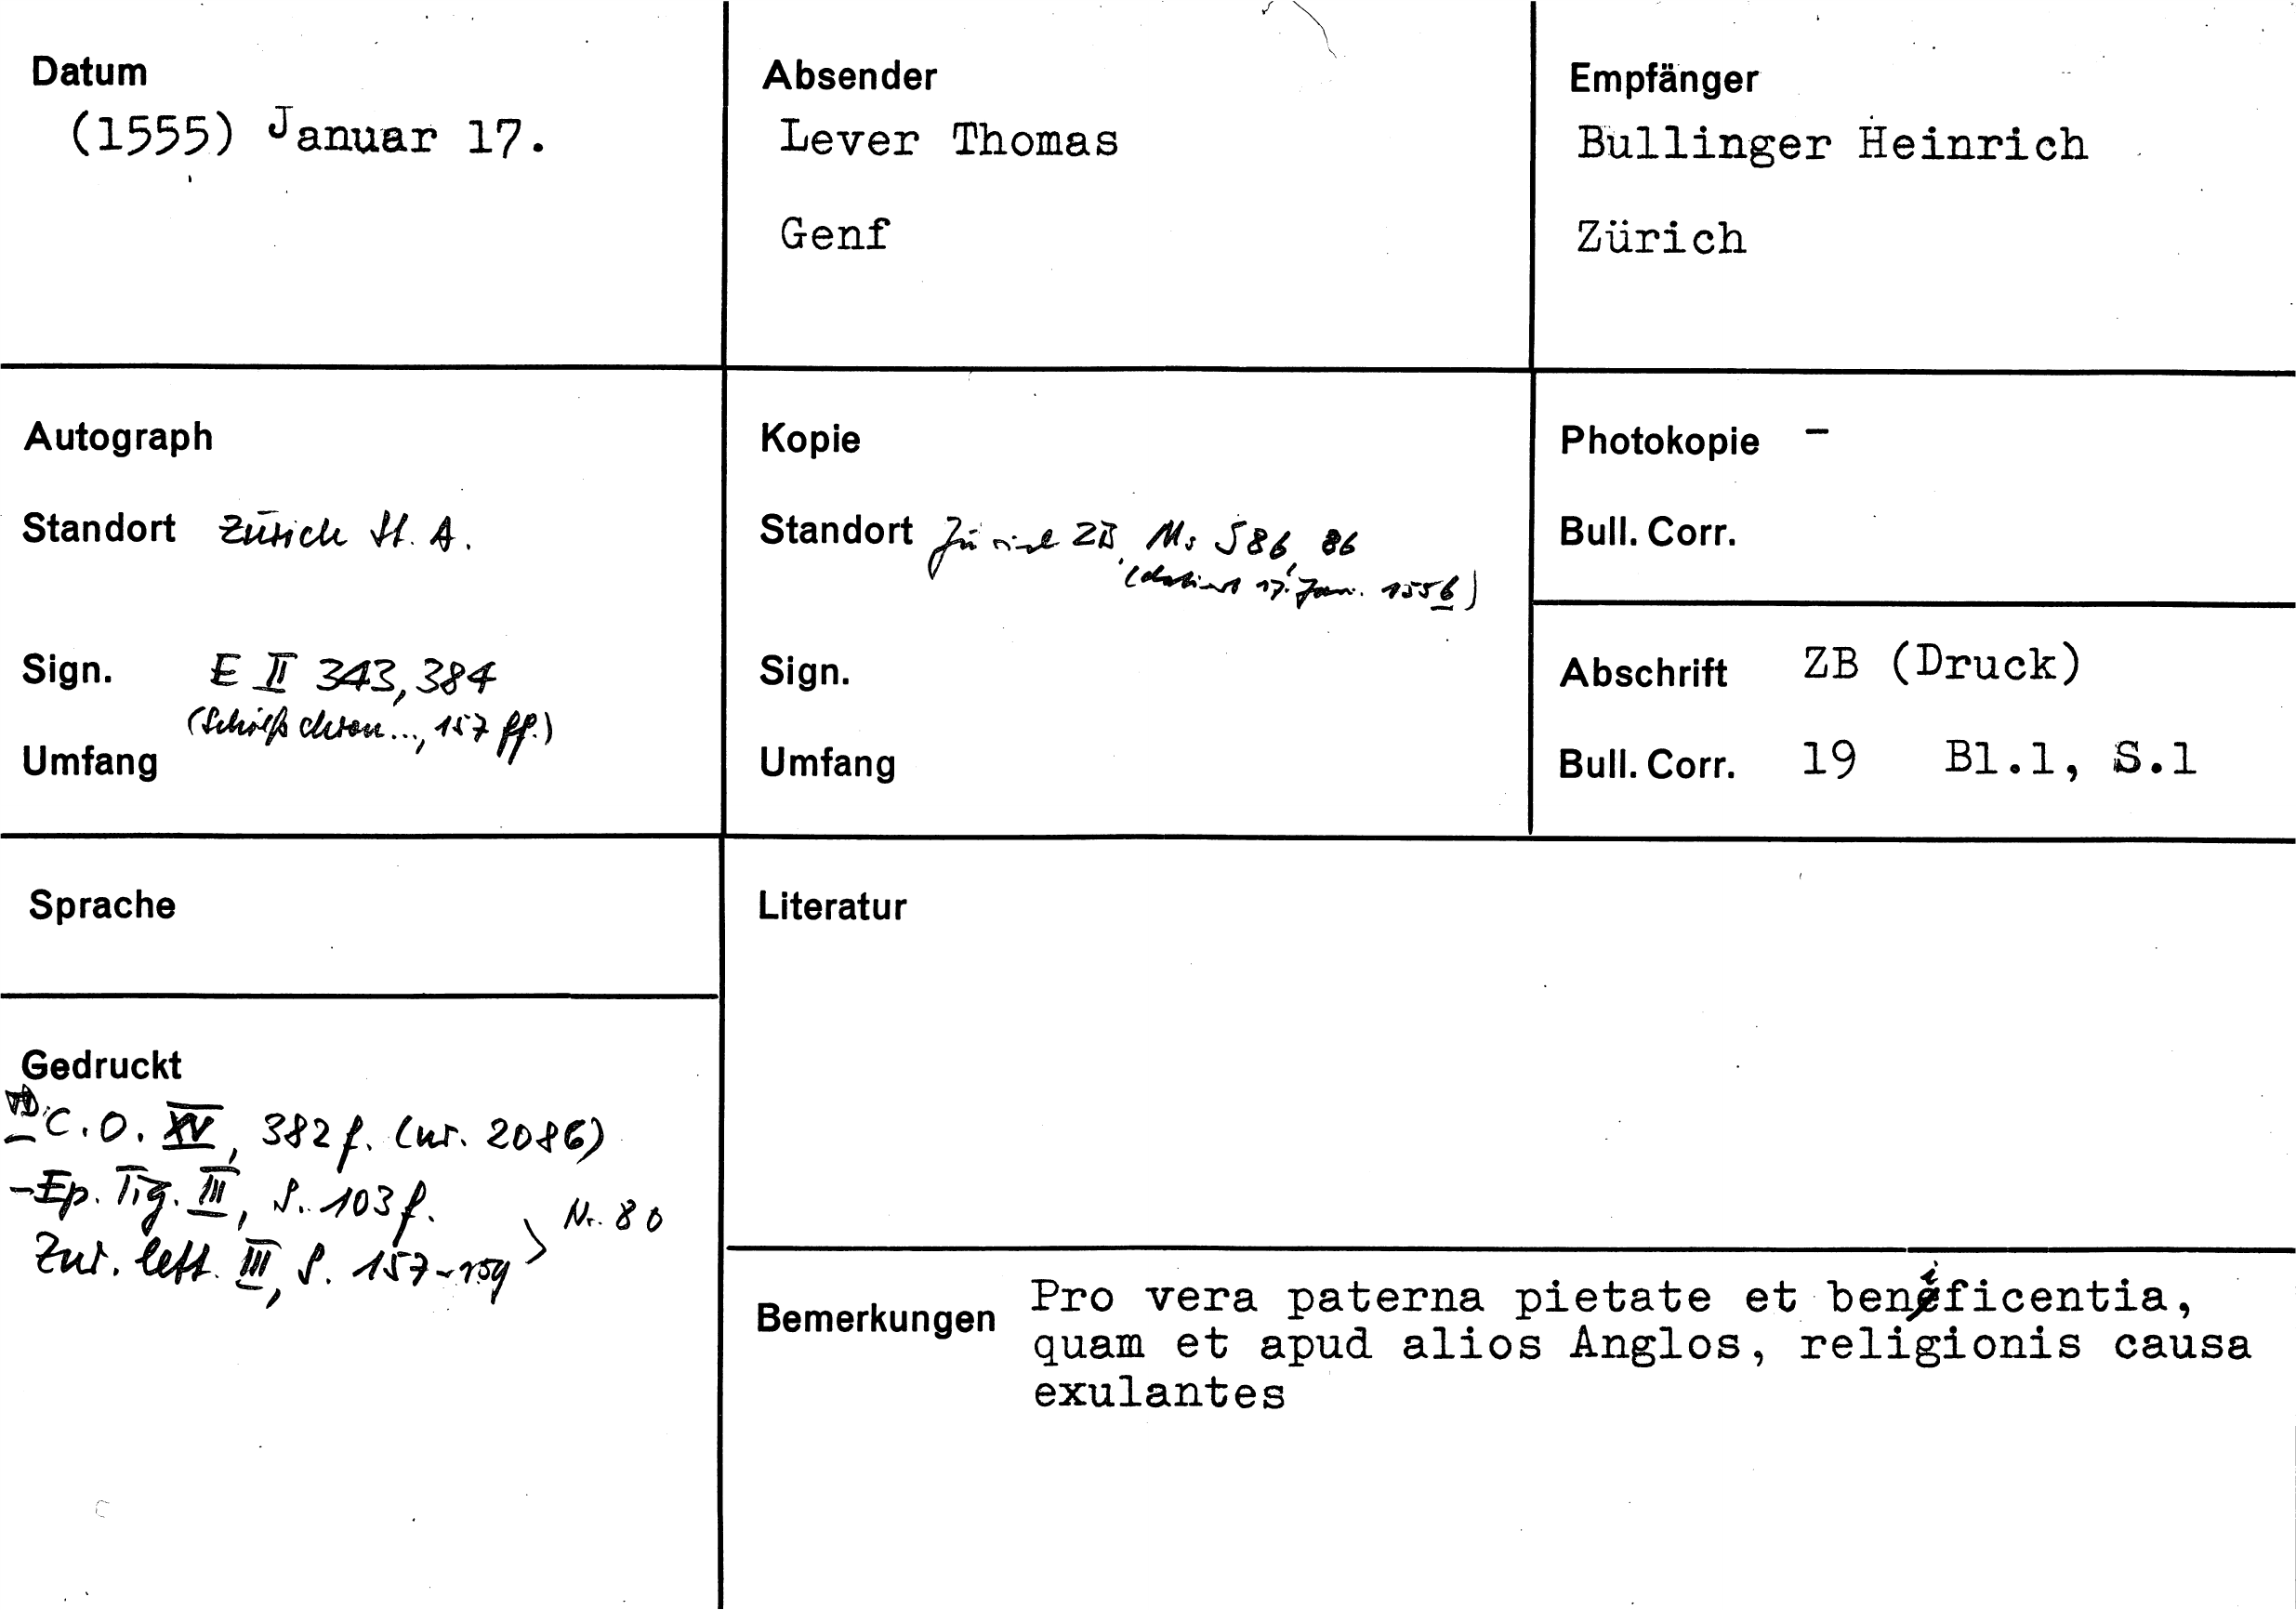 Datum
(1555) Januar 17.
Absender
Lever Thomas
Genf
Empfänger
Bullinger Heinrich
Zürich
Autograph
Standort Zürich St. A.
Sign. E II 343, 384
(Schieß chron..., 157 ff.)
Umfang
Kopie
Standort Zürich ZB, Ms S 86, 86
(datiert 17. Jan. 1556)
Sign.
Umfang
Photokopie -
Bull. Corr.
Abschrift ZB (Druck)
Bull. Corr. 19 Bl.1, S.1
Sprache
Literatur
Gedruckt
- C. O. XV, 382 f. (nr. 2086)
- Ep. Tig. III, S. 103 f.
Zur. lett. III, S. 157-159 > Nr. 80
Bemerkungen
Pro vera paterna pietate et benificentia,
quam et apud alios Anglos, religionis causa
exulantes